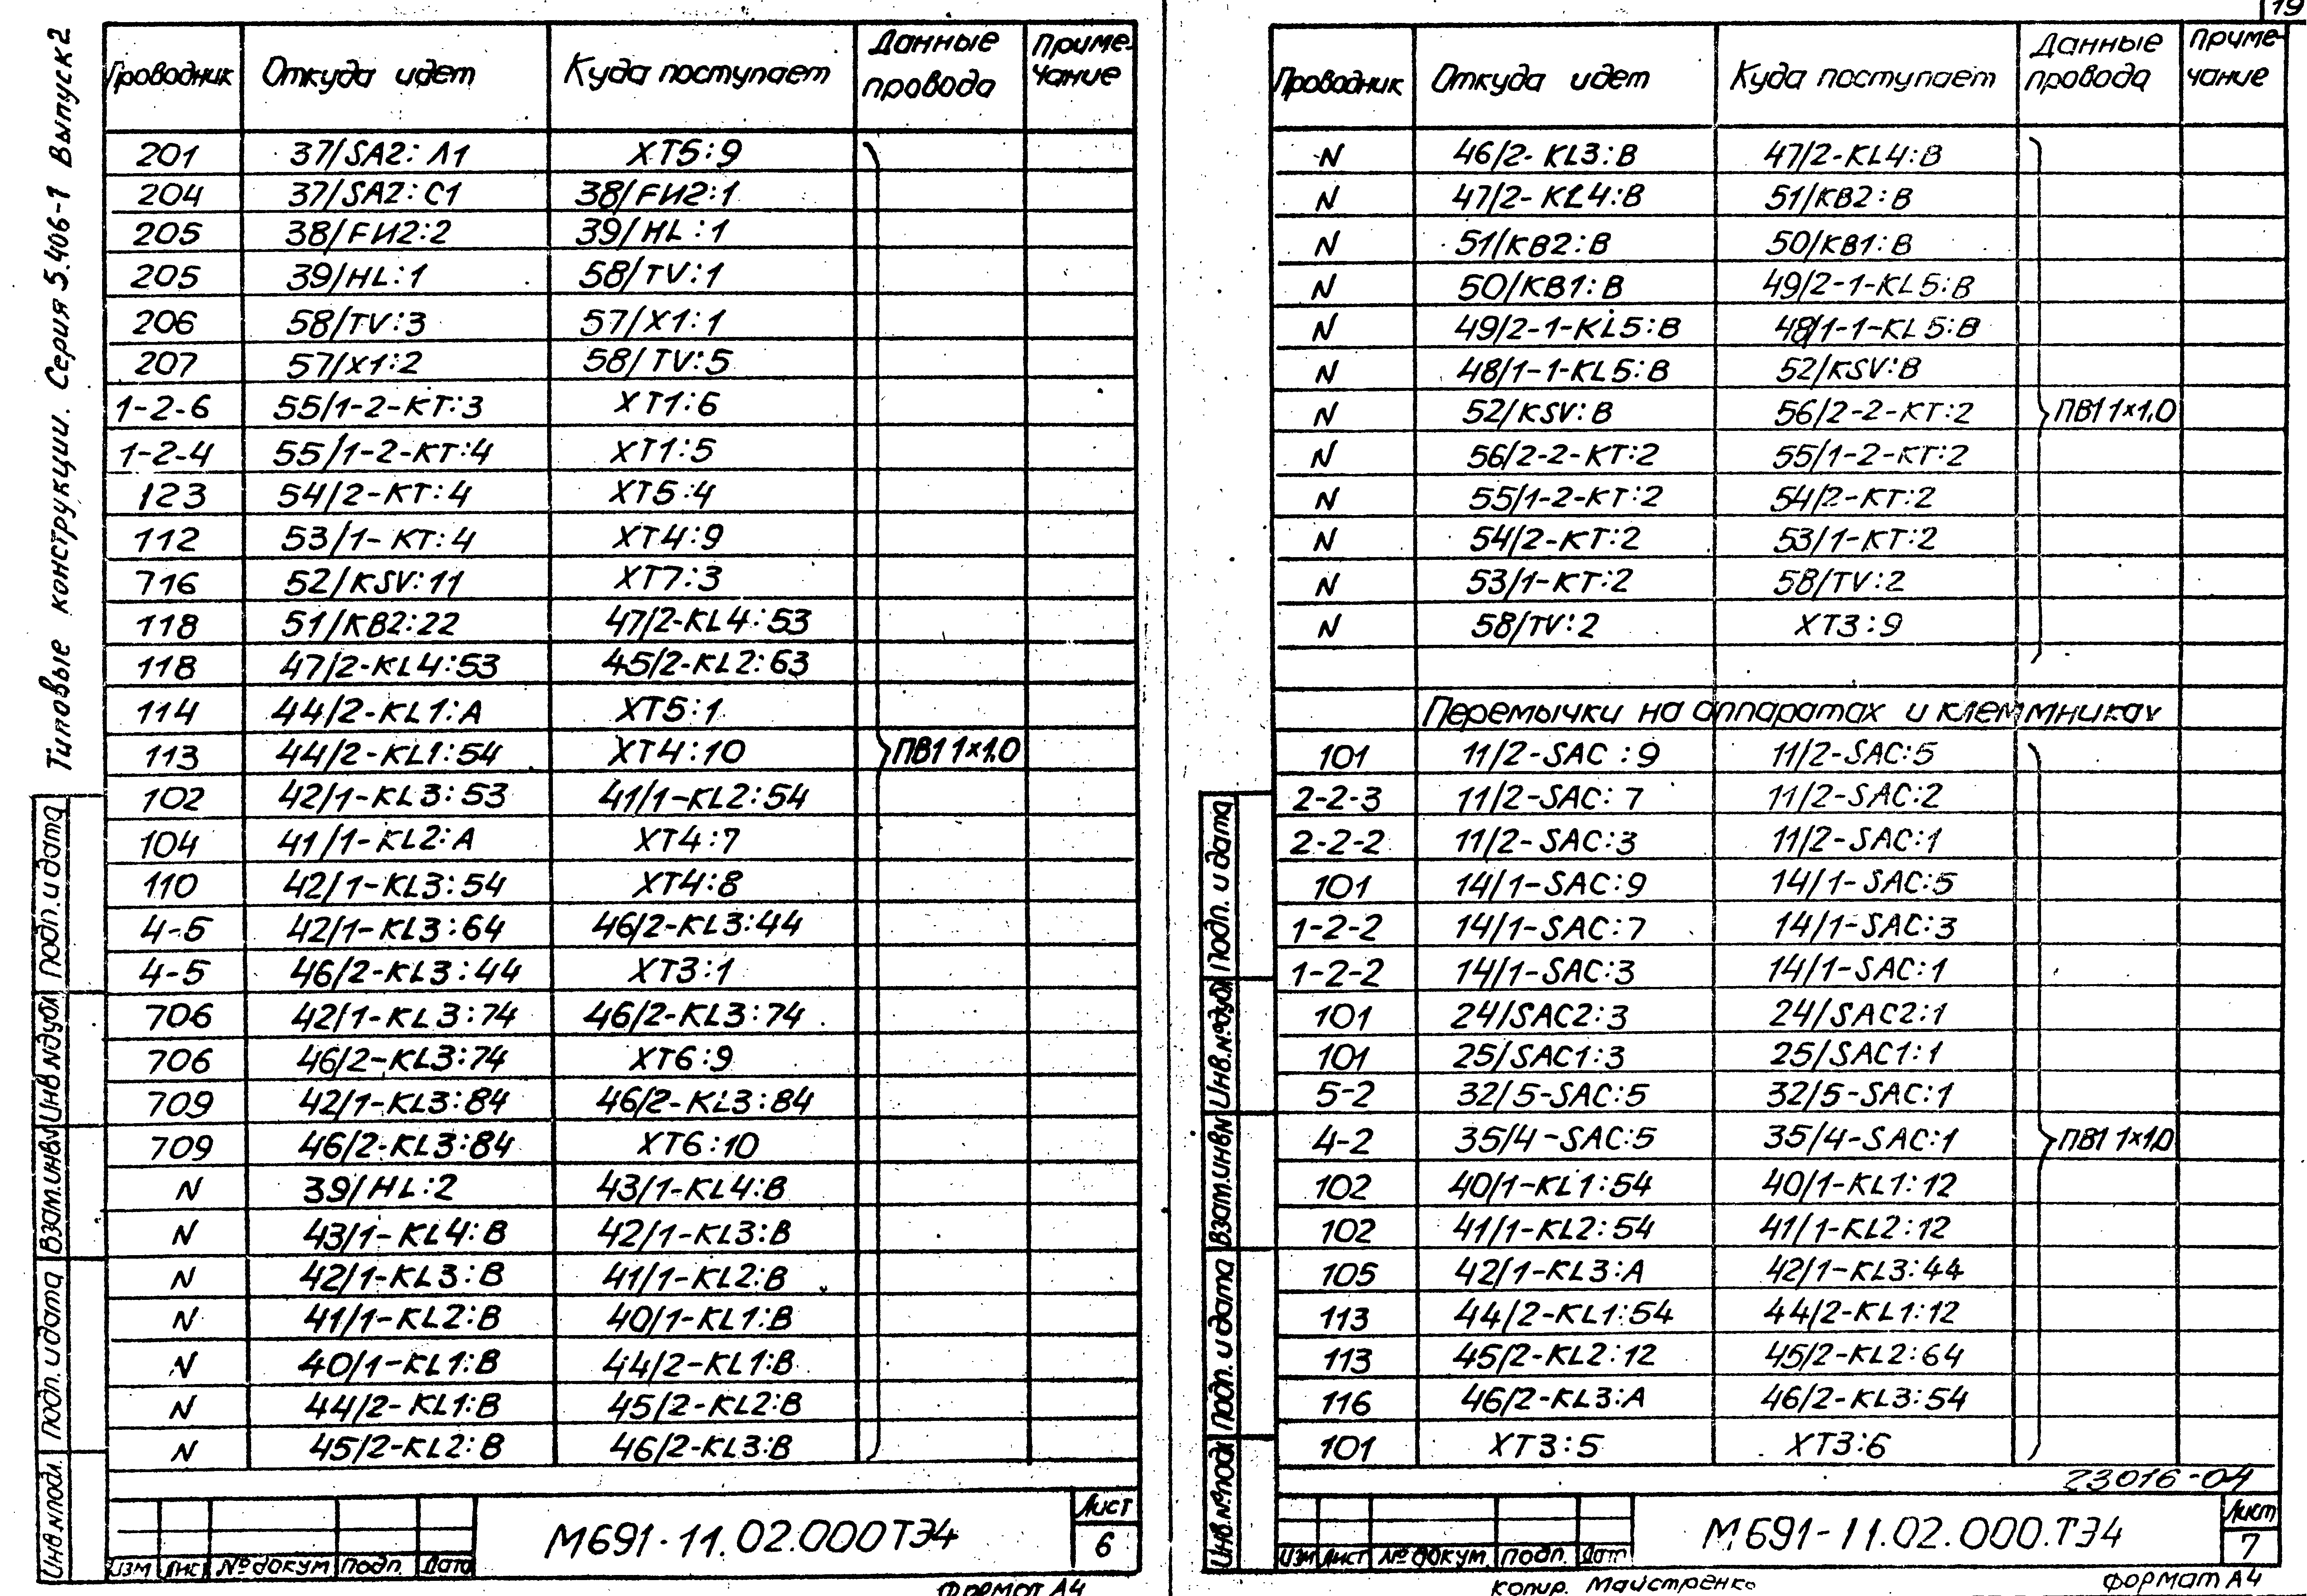 Типовые конструкции. Серия 5.406-1 Выпуск 2
Проводник Откуда идет Куда поступает Данные провода Приме-чание
201 37/SA2:Л1 XT5:9
204 37/SA2:C1 38/FИ2:1
205 38/FИ2:2 39/HL:1
205 39/HL:1 58/TV:1
206 58/TV:3 57/X1:1
207 57/X1:2 58/TV:5
1-2-6 55/1-2-KT:3 XT1:6
1-2-4 55/1-2-KT:4 XT1:5
123 54/2-KT:4 XT5:4
112 53/1-KT:4 XT4:9
716 52/KSV:11 XT7:3
118 51/KB2:22 47/2-KL4:53
118 47/2-KL4:53 45/2-KL2:63
114 44/2-KL1:A XT5:1
113 44/2-KL1:54 XT4:10 ПВ1 1×1.0
102 42/1-KL3:53 41/1-KL2:54
104 41/1-KL2:A XT4:7
110 42/1-KL3:54 XT4:8
4-5 42/1-KL3:64 46/2-KL3:44
4-5 46/2-KL3:44 XT3:1
706 42/1-KL3:74 46/2-KL3:74
706 46/2-KL3:74 XT6:9
709 42/1-KL3:84 46/2-KL3:84
709 46/2-KL3:84 XT6:10
N 39/HL:2 43/1-KL4:B
N 43/1-KL4:B 42/1-KL3:B
N 42/1-KL3:B 41/1-KL2:B
N 41/1-KL2:B 40/1-KL1:B
N 40/1-KL1:B 44/2-KL1:B
N 44/2-KL1:B 45/2-KL2:B
N 45/2-KL2:B 46/2-KL3:B
Подп. и дата
Инв.№дубл
Взам.инв№
Подп. и дата
Инв.№подл.
Изм Лис № докум Подп. Дата
М691-11.02.000ТЭ4
Лист
6
Формат А4
19
Проводник Откуда идет Куда поступает Данные провода Приме-чание
N 46/2-KL3:B 47/2-KL4:B
N 47/2-KL4:B 51/KB2:B
N 51/KB2:B 50/KB1:B
N 50/KB1:B 49/2-1-KL5:B
N 49/2-1-KL5:B 48/1-1-KL5:B
N 48/1-1-KL5:B 52/KSV:B
N 52/KSV:B 56/2-2-KT:2 ПВ1 1×1.0
N 56/2-2-KT:2 55/1-2-KT:2
N 55/1-2-KT:2 54/2-KT:2
N 54/2-KT:2 53/1-KT:2
N 53/1-KT:2 58/TV:2
N 58/TV:2 XT3:9
Перемычки на аппаратах и клеммниках
101 11/2-SAC:9 11/2-SAC:5
2-2-3 11/2-SAC:7 11/2-SAC:2
2-2-2 11/2-SAC:3 11/2-SAC:1
101 14/1-SAC:9 14/1-SAC:5
1-2-2 14/1-SAC:7 14/1-SAC:3
1-2-2 14/1-SAC:3 14/1-SAC:1
101 24/SAC2:3 24/SAC2:1
101 25/SAC1:3 25/SAC1:1
5-2 32/5-SAC:5 32/5-SAC:1
4-2 35/4-SAC:5 35/4-SAC:1 ПВ1 1×1,0
102 40/1-KL1:54 40/1-KL1:12
102 41/1-KL2:54 41/1-KL2:12
105 42/1-KL3:A 42/1-KL3:44
113 44/2-KL1:54 44/2-KL1:12
113 45/2-KL2:12 45/2-KL2:64
116 46/2-KL3:A 46/2-KL3:54
101 XT3:5 XT3:6
23016-04
Подп. и дата
Инв.№дубл
Взам.инв№
Подп. и дата
Инв.№подл
Изм Лист № докум. Подп. Дат
М691-11.02.000.ТЭ4
Лист
7
Копир. Майстренко
Формат А4